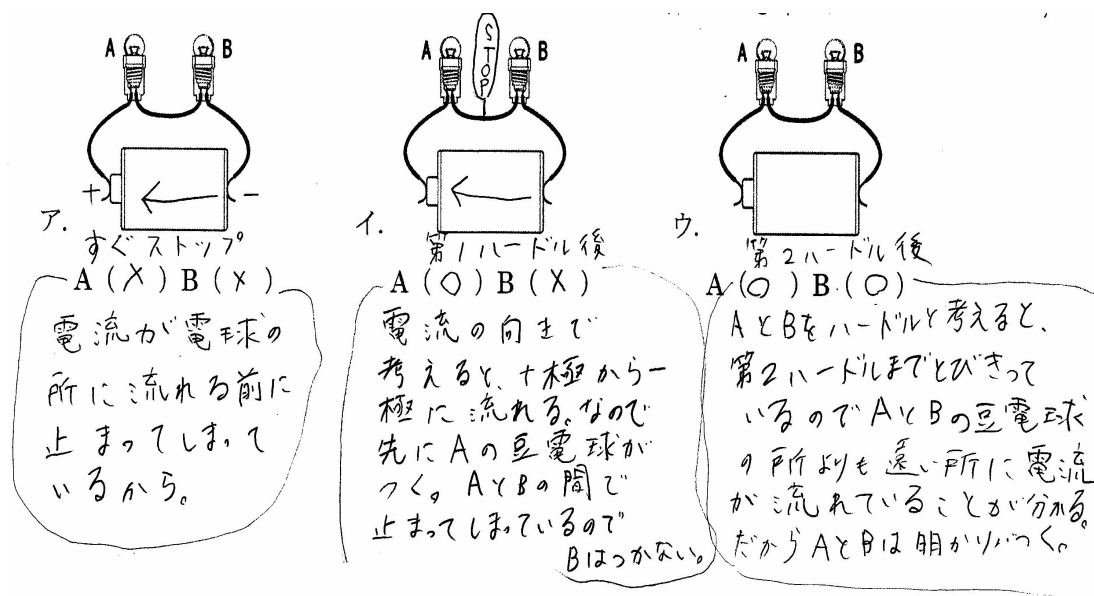 A B
+ −
ア.
すぐストップ
A (×) B (×)
電流が電球の
所に流れる前に
止まってしまって
いるから。
A STOP B
イ.
第1ハードル後
A (○) B (×)
電流の向きで
考えると、+極から−
極に流れる。なので
先にAの豆電球が
つく。AとBの間で
止まってしまっているので
Bはつかない。
A B
ウ.
第2ハードル後
A (○) B (○)
AとBをハードルと考えると、
第2ハードルまでとびきって
いるのでAとBの豆電球
の所よりも遠い所に電流
が流れていることが分かる。
だからAとBは明かりがつく。